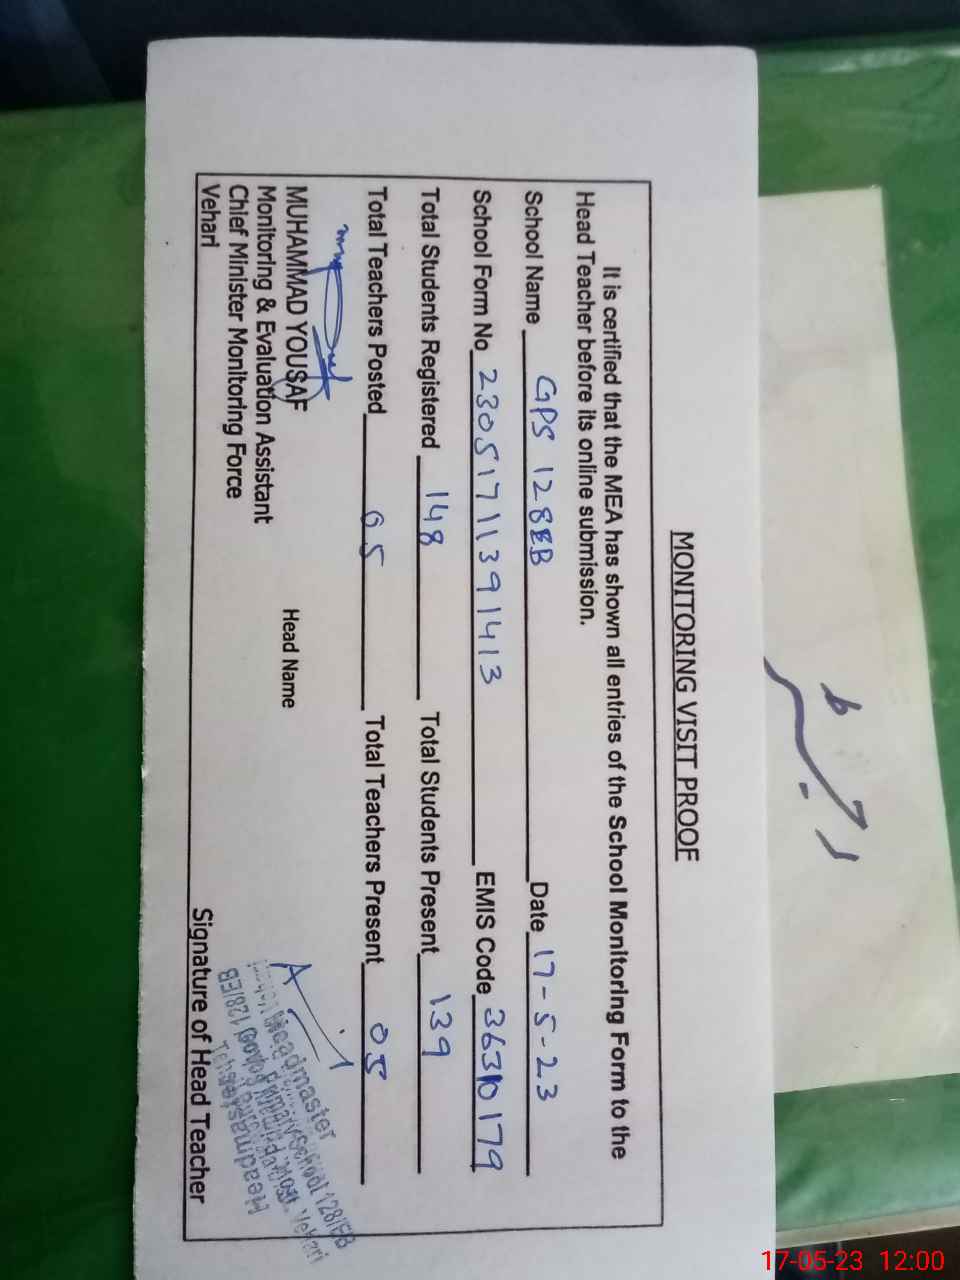 MONITORING VISIT PROOF
It is certified that the MEA has shown all entries of the School Monitoring Form to the
Head Teacher before its online submission.
School Name GPS 128EB Date 17-5-23
School Form No 23051711391413 EMIS Code 36310179
Total Students Registered 148 Total Students Present 139
Total Teachers Posted 05 Total Teachers Present 05
MUHAMMAD YOUSAF
Monitoring & Evaluation Assistant
Chief Minister Monitoring Force
Vehari
Head Name
Headmaster
Primary School 128/EB
Vehari
Headmaster
128/EB
Signature of Head Teacher
17-05-23 12:00